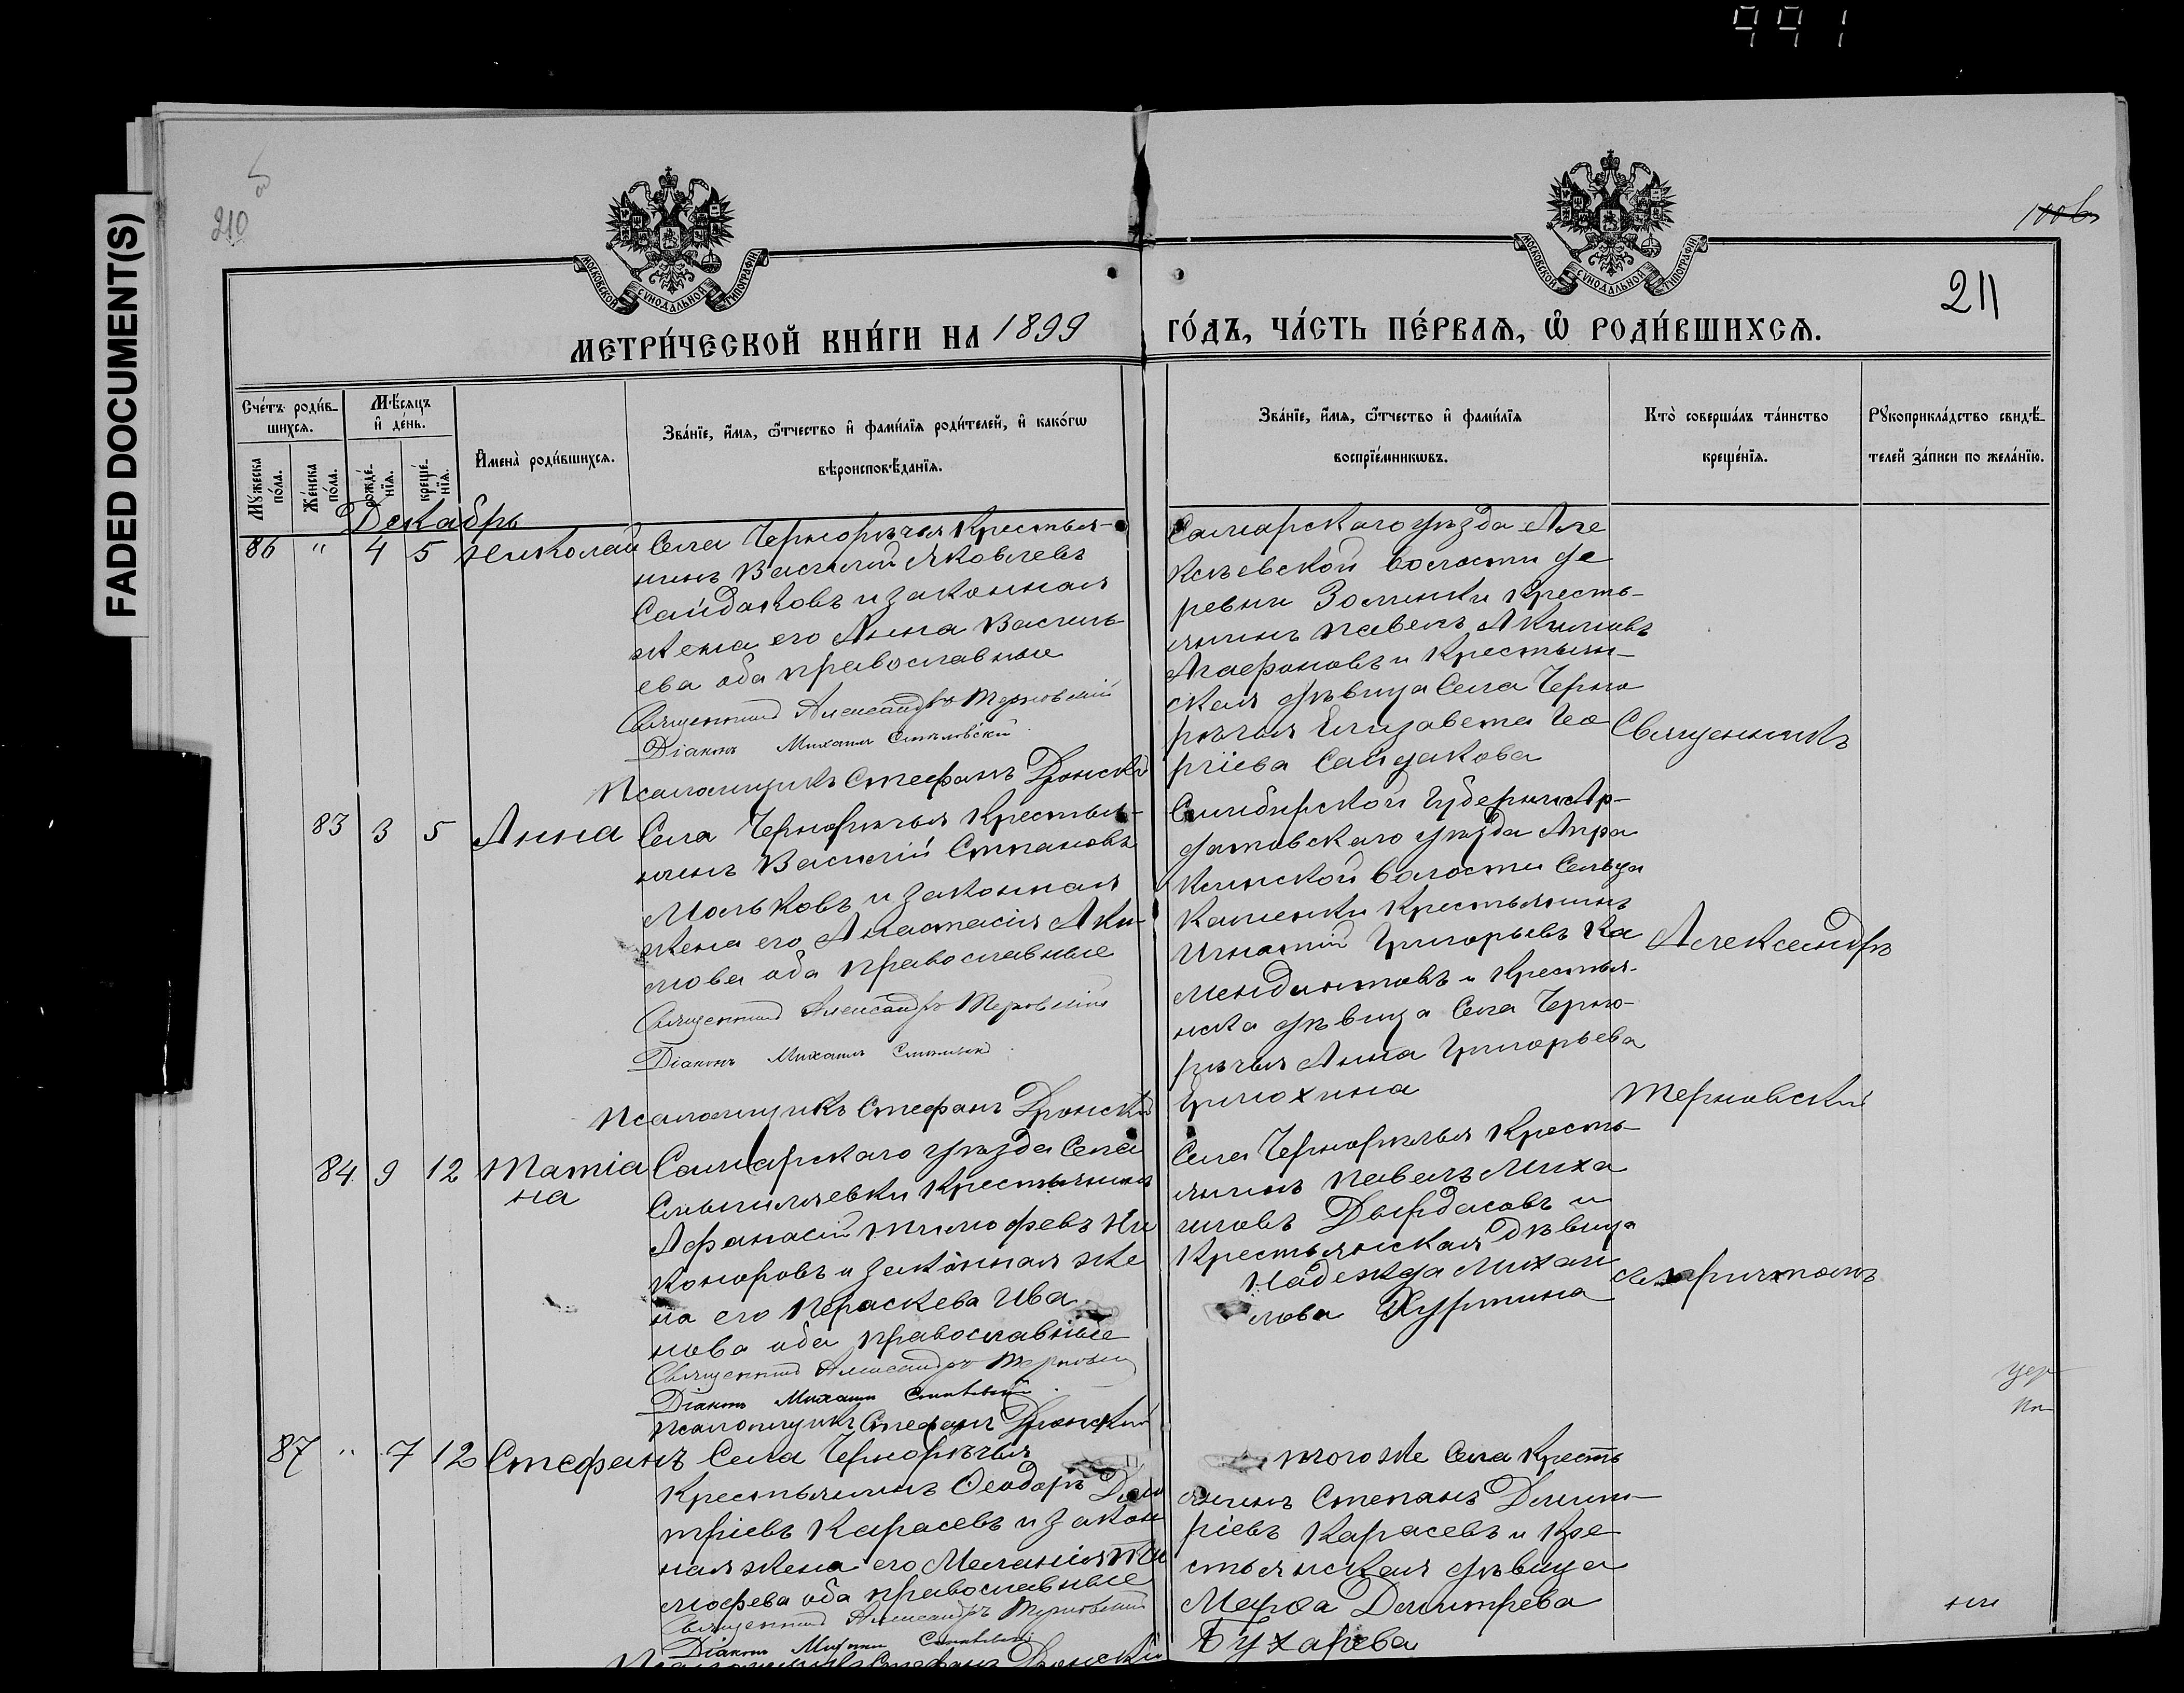 991
FADED DOCUMENT(S)
210
211
МОСКОВСКОЙ СѴНОДАЛЬНОЙ ТИПОГРАФІИ
МОСКОВСКОЙ СѴНОДАЛЬНОЙ ТИПОГРАФІИ
МЕТРИ́ЧЕСКОЙ КНИ́ГИ НА 1899 ГО́ДЪ, ЧА́СТЬ ПЕ́РВАѦ, Ѡ҆ РОДИ́ВШИХСѦ.
Сче́тъ роди́вшихсѧ.
Мужеска по́ла.
Же́нска по́ла.
Мѣ́сѧцъ и҆ де́нь.
рожде́нїѧ.
креще́нїѧ.
И҆мена̀ роди́вшихсѧ.
Зва́нїе, и҆́мѧ, ѻ҆́тчество и҆ фами́лїѧ роди́телей, и҆ како́гѡ
вѣроисповѣ́данїѧ.
Зва́нїе, и҆́мѧ, ѻ҆́тчество и҆ фами́лїѧ
воспрїе́мникѡвъ.
Кто̀ соверша́лъ та́инство
креще́нїѧ.
Рꙋкоприкла́дство свидѣ́-
телей за́писи по жела́нїю.
Декабрь
86 " 4 5 Николай
Села Чернорѣчья Крестья-
нинъ Василій Яковлевъ
Сайдаковъ и законная
жена его Анна Василь
ева оба православные
Священникъ Александръ Терновскій
Діаконъ Михаилъ
Псаломщикъ Стефанъ Дронскій
Самарскаго уѣзда Але
ксѣевской волости де
ревни Зоминки кресть-
янинъ Павелъ Акимовъ
Агафоновъ и крестьян-
ская дѣвица Села Черно
рѣчья Елизавета Гео
ргіева Сайдакова
Священникъ
83 3 5 Анна
Села Чернорѣчья Крестья-
нинъ Василій Степановъ
Мальковъ и законная
жена его Анастасія Аки-
мова оба православные
Священникъ Александръ Терновскій
Діаконъ Михаилъ
Псаломщикъ Стефанъ Дронскій
Симбирской Губерніи Ар-
датовскаго уѣзда Апра
ксинской волости Сельца
Каменки Крестьянинъ
Игнатій Григорьевъ Ка
и Крестья-
нска дѣвица Села Черно-
рѣчья Анна Григорьева
Гримохина
Александръ
Терновскій
84 9 12 Татіа
на
Самарскаго уѣзда Села
Смышляевки Крестьянинъ
Афанасій Тимофеевъ Ни
коноровъ и законная же
на его Параскева Ива
нова оба православные
Священникъ Александръ Терновскій
Діаконъ Михаилъ
Псаломщикъ Стефанъ Дронскій
Села Чернорѣчья Кресть
янинъ Павелъ Миха
иловъ Дырдасовъ и
Крестьянская дѣвица
Надежда Михаи
лова Хуртина
87 " 7 12 Стефанъ
Села Чернорѣчья
Крестьянинъ Ѳеодоръ Дим
тріевъ Карасевъ и закон
ная жена его Меланія Ти
мофева оба православные
Священникъ Александръ Терновскій
Діаконъ Михаилъ
Псаломщикъ Стефанъ Дронскій
того же Села Кресть
янинъ Степанъ Димит-
ріевъ Карасевъ и Кре
стьянская дѣвица
Марѳа Димитрева
Бухарева